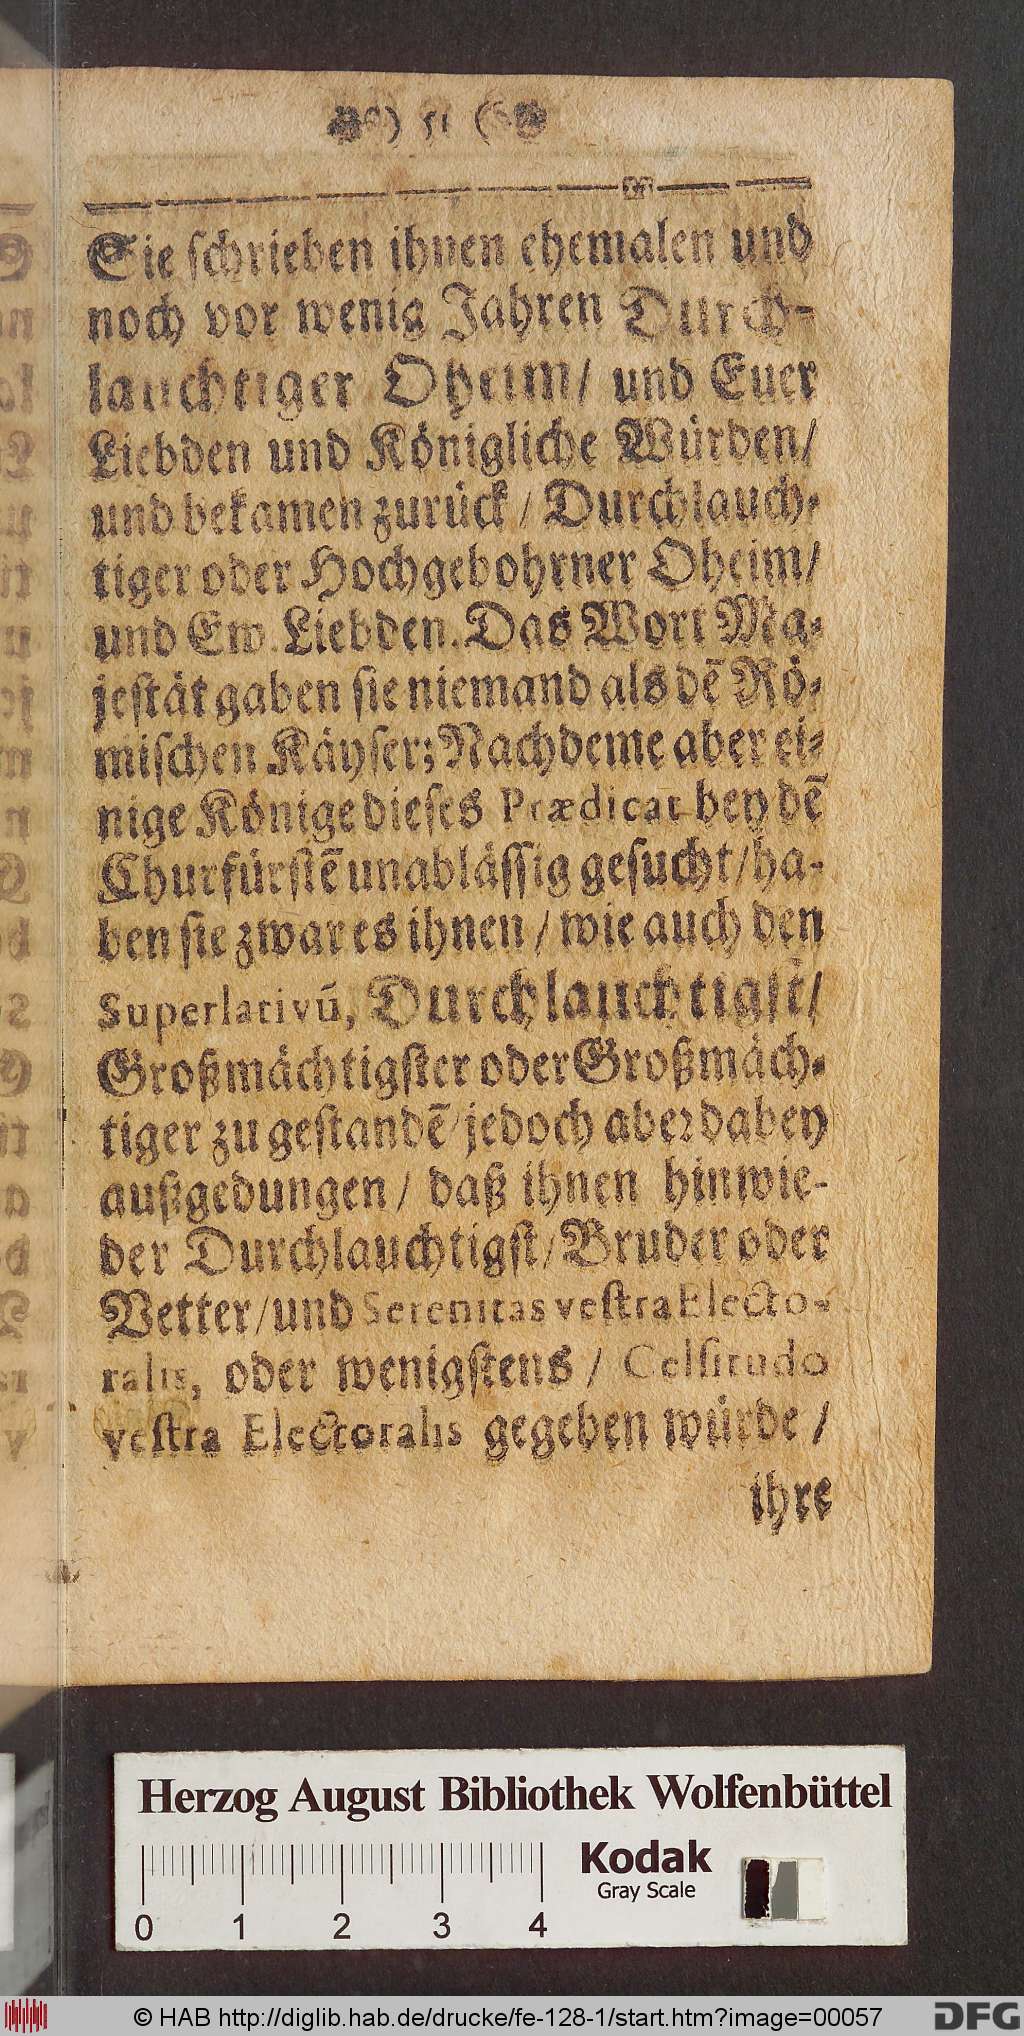 ) 51 (
Sie schrieben ihnen ehemalen und
noch vor wenig Jahren Durch-
lauchtiger Oheim/ und Euer
Liebden und Königliche Würden/
und bekamen zurück / Durchlauch-
tiger oder Hochgebohrner Oheim/
und Ew. Liebden. Das Wort Ma-
jestät gaben sie niemand als dē Rö-
mischen Käyser; Nachdeme aber ei-
nige Könige dieses Prædicat bey dē
Churfürstē unablässig gesucht/ ha-
ben sie zwar es ihnen / wie auch den
Superlativū, Durchlauchtigst/
Großmächtigster oder Großmäch-
tiger zu gestandē/ jedoch aber dabey
außgedungen / daß ihnen hinwie-
der Durchlauchtigst/ Bruder oder
Vetter/ und Serenitas vestra Electo-
ralis, oder wenigstens / Celsitudo
vestra Electoralis gegeben würde /
ihre
Herzog August Bibliothek Wolfenbüttel
Kodak
Gray Scale
0 1 2 3 4
© HAB http://diglib.hab.de/drucke/fe-128-1/start.htm?image=00057
DFG